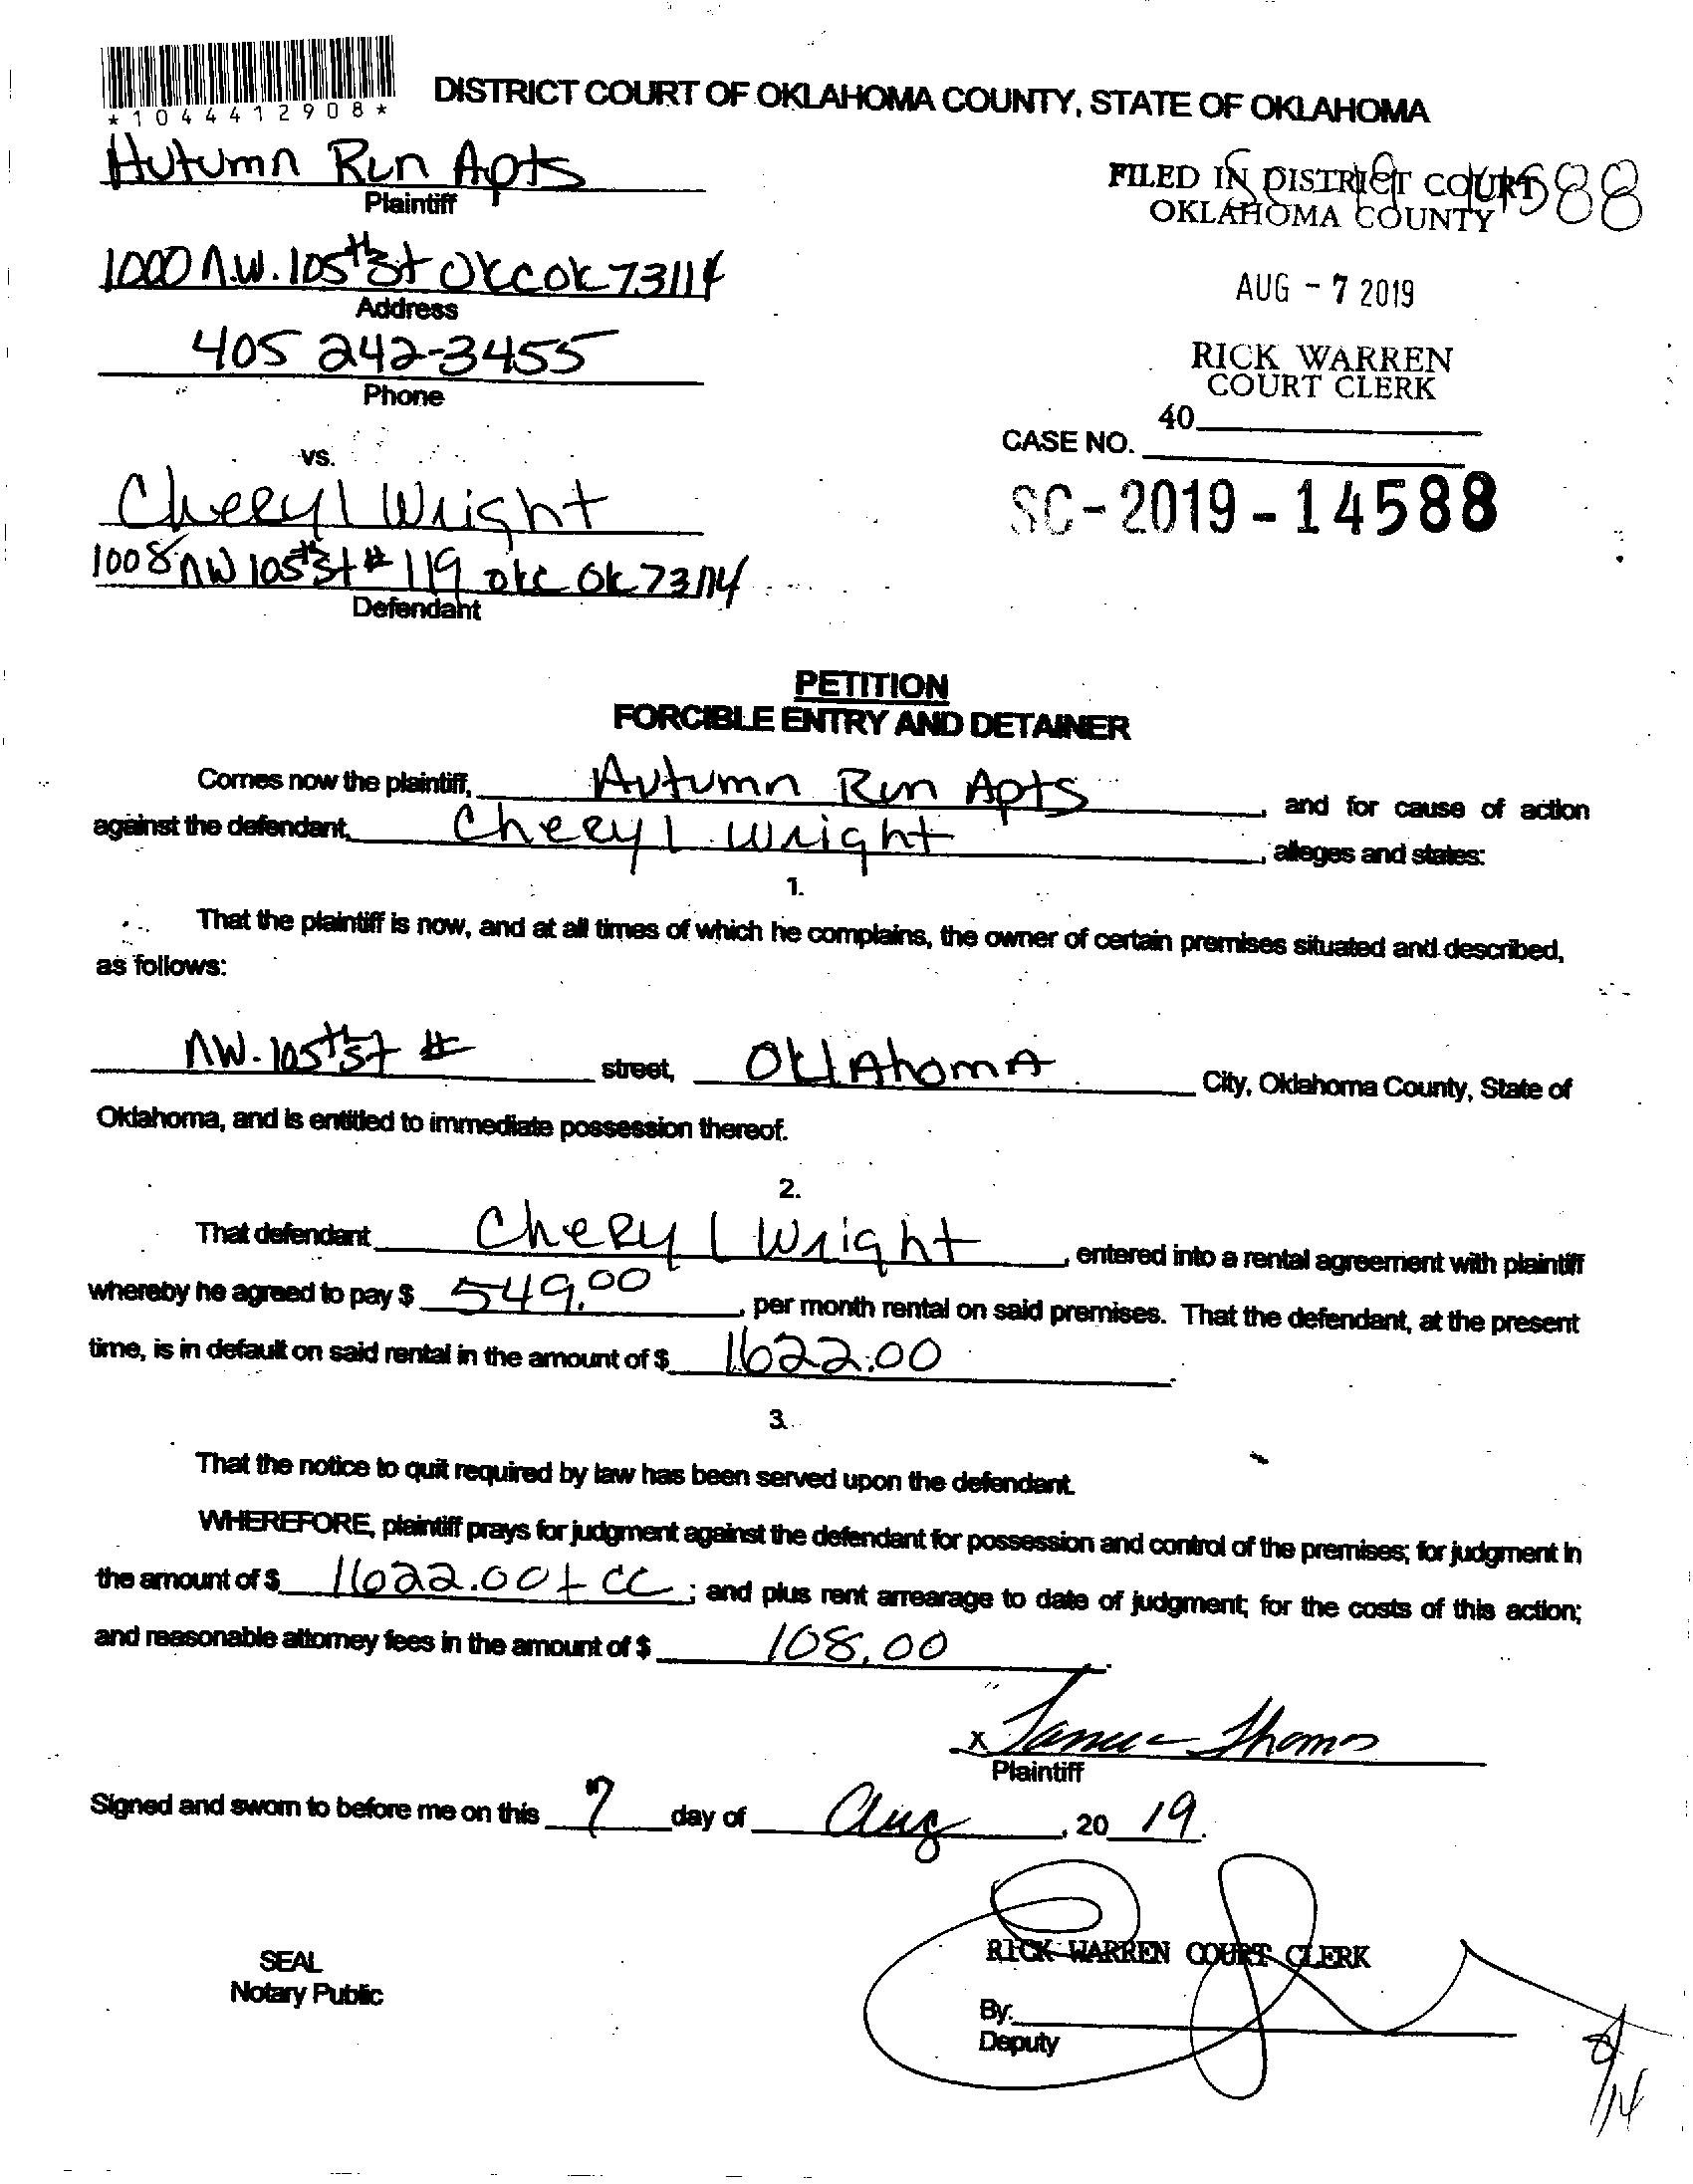 *1044412908*
DISTRICT COURT OF OKLAHOMA COUNTY, STATE OF OKLAHOMA
Autumn Run Apts
Plaintiff
FILED IN DISTRICT COURT
OKLAHOMA COUNTY
SC 19 14588
1000 N.W. 105th St OKC OK 73114
Address
AUG - 7 2019
405 242-3455
Phone
RICK WARREN
COURT CLERK
40
CASE NO.
vs.
Cheryl Wright
SC-2019-14588
1008 NW 105th St # 119 OKC OK 73114
Defendant
PETITION
FORCIBLE ENTRY AND DETAINER
Comes now the plaintiff, Autumn Run Apts, and for cause of action
against the defendant, Cheryl Wright, alleges and states:
1.
That the plaintiff is now, and at all times of which he complains, the owner of certain premises situated and described,
as follows:
NW. 105th St # street, OklAhomA City, Oklahoma County, State of
Oklahoma, and is entitled to immediate possession thereof.
2.
That defendant Cheryl Wright, entered into a rental agreement with plaintiff
whereby he agreed to pay $ 549.00, per month rental on said premises. That the defendant, at the present
time, is in default on said rental in the amount of $ 1622.00.
3.
That the notice to quit required by law has been served upon the defendant.
WHEREFORE, plaintiff prays for judgment against the defendant for possession and control of the premises; for judgment in
the amount of $ 1622.00 + CC; and plus rent arrearage to date of judgment; for the costs of this action;
and reasonable attorney fees in the amount of $ 108.00.
x Thomas
Plaintiff
Signed and sworn to before me on this 7 day of Aug, 20 19.
RICK WARREN COURT CLERK
SEAL
Notary Public
By:
Deputy
8/14